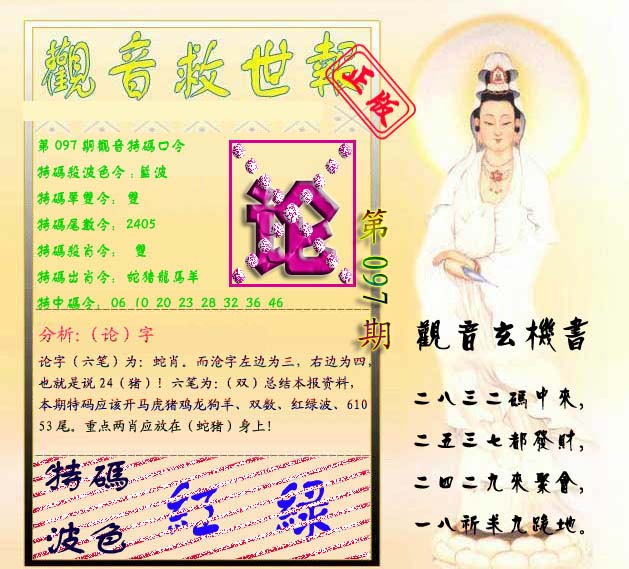 觀音救世報
正版
第097期觀音特碼口令
特碼殺波色令:藍波
特碼單雙令: 雙
特碼尾數令: 2405
特碼殺肖令: 雙
特碼出肖令: 蛇猪龍馬羊
特中碼令: 06 10 20 23 28 32 36 46
论
第097期
分析:（论）字
论字（六笔）为：蛇肖。而沧字左边为三，右边为四，
也就是说24（猪）！六笔为：（双）总结本报资料，
本期特码应该开马虎猪鸡龙狗羊、双数、红绿波、610
53尾。重点两肖应放在（蛇猪）身上！
特碼
波色
紅 綠
觀音玄機書
二八三二碼中來,
二五三七都發財,
二四二九來聚會,
一八祈求九跪地。